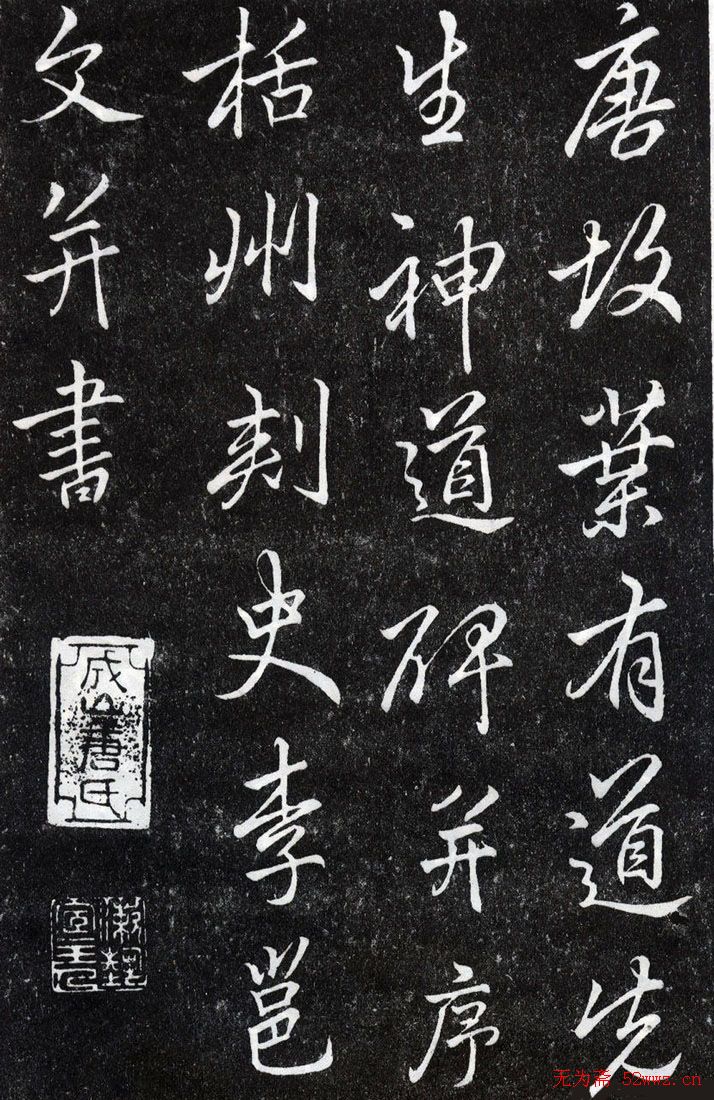 唐故葉有道先
生神道碑并序
括州刺史李邕
文并書
成山唐氏
无为斋 52wwz.cn